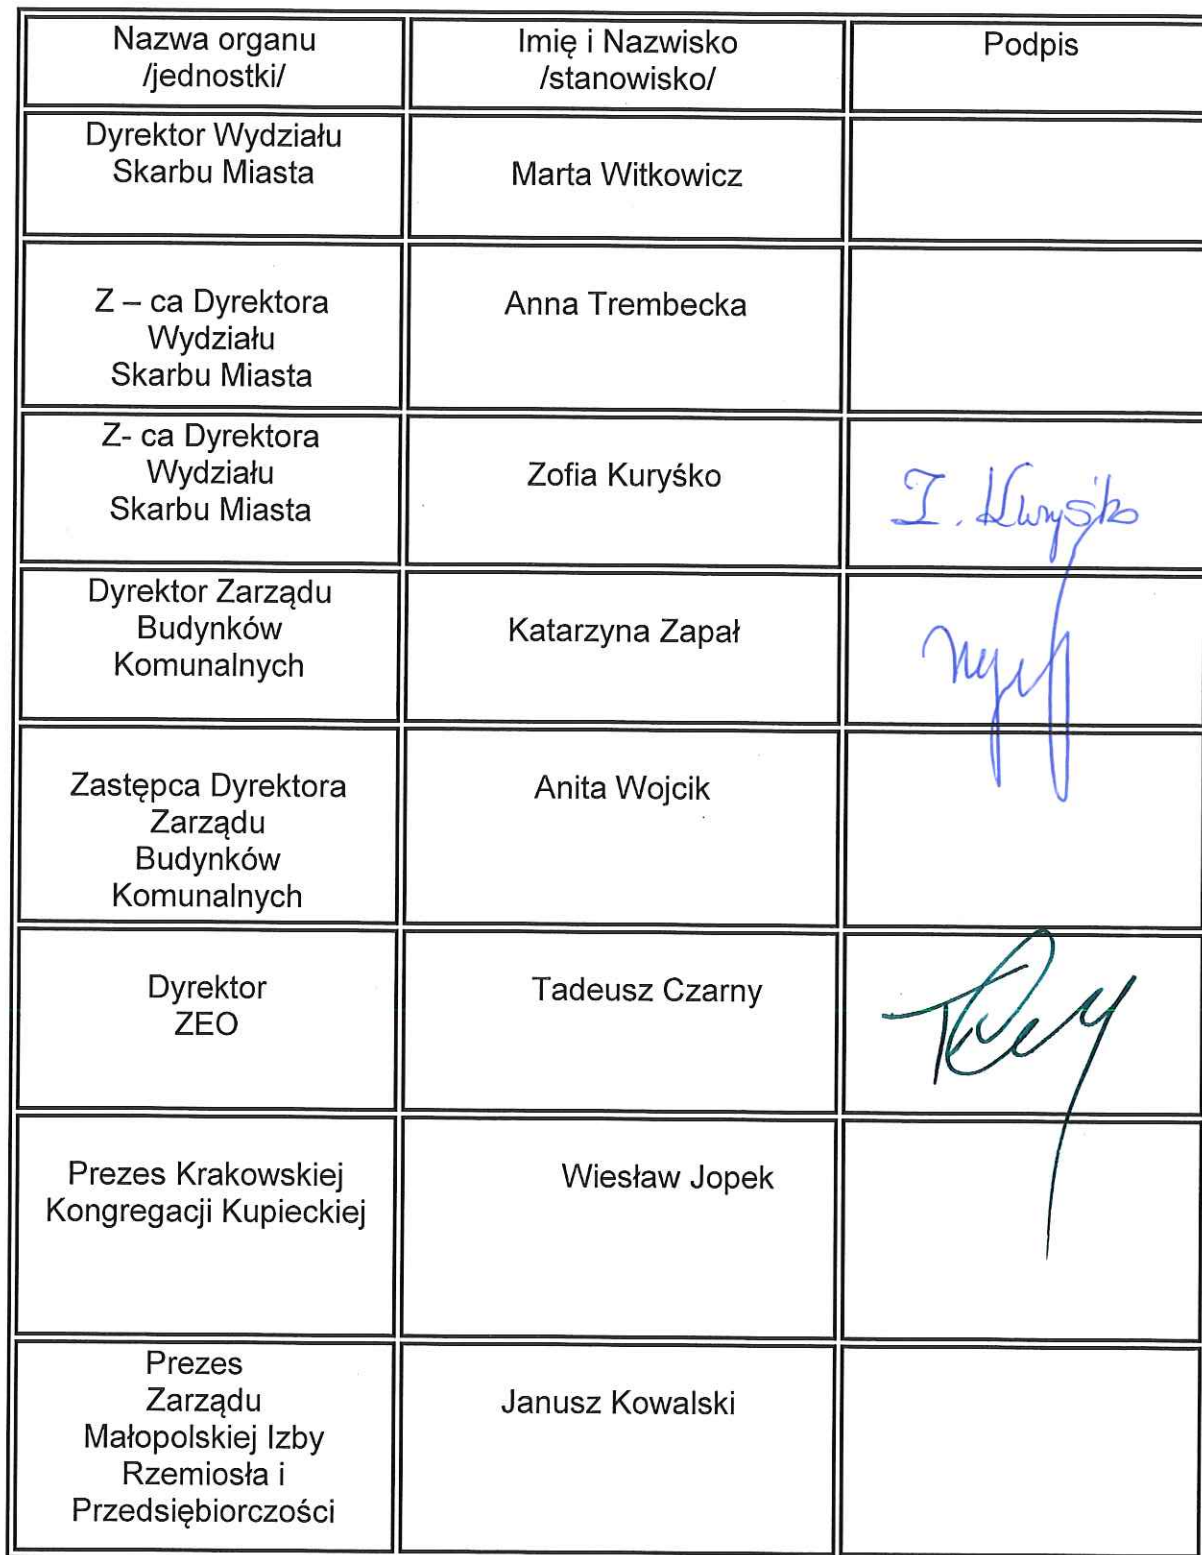 Nazwa organu
/jednostki/
Imię i Nazwisko
/stanowisko/
Podpis
Dyrektor Wydziału
Skarbu Miasta
Marta Witkowicz
Z – ca Dyrektora
Wydziału
Skarbu Miasta
Anna Trembecka
Z- ca Dyrektora
Wydziału
Skarbu Miasta
Zofia Kuryśko
Z. Kuryśko
Dyrektor Zarządu
Budynków
Komunalnych
Katarzyna Zapał
Zastępca Dyrektora
Zarządu
Budynków
Komunalnych
Anita Wojcik
Dyrektor
ZEO
Tadeusz Czarny
Prezes Krakowskiej
Kongregacji Kupieckiej
Wiesław Jopek
Prezes
Zarządu
Małopolskiej Izby
Rzemiosła i
Przedsiębiorczości
Janusz Kowalski